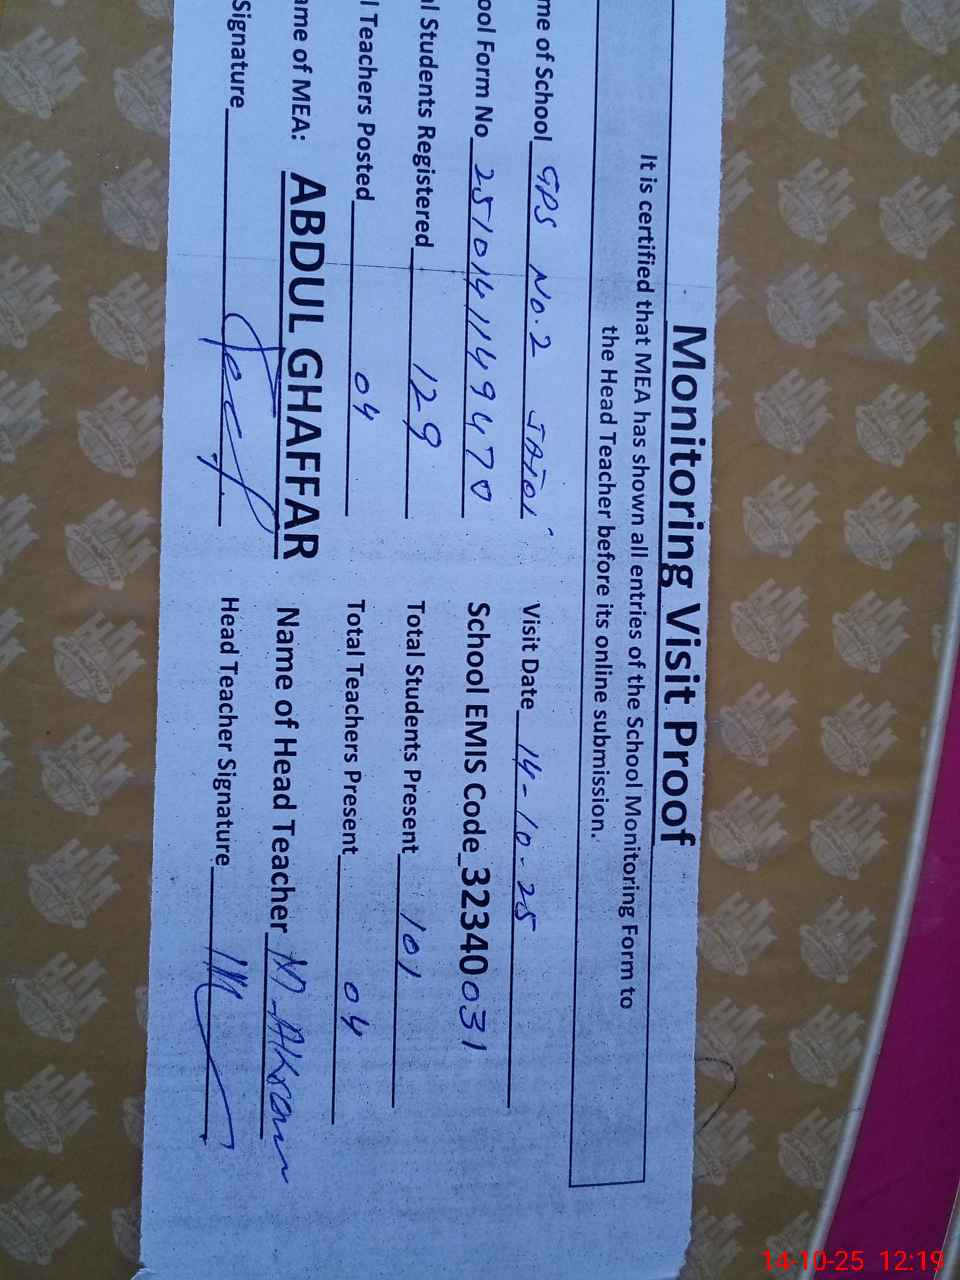 Monitoring Visit Proof
It is certified that MEA has shown all entries of the School Monitoring Form to
the Head Teacher before its online submission.
me of School GPS No.2 Jatoi Visit Date 14-10-25
ool Form No 2510141149470 School EMIS Code 32340031
l Students Registered 129 Total Students Present 101
l Teachers Posted 04 Total Teachers Present 04
ame of MEA: ABDUL GHAFFAR Name of Head Teacher M. Akram
Signature Head Teacher Signature
14-10-25 12:19